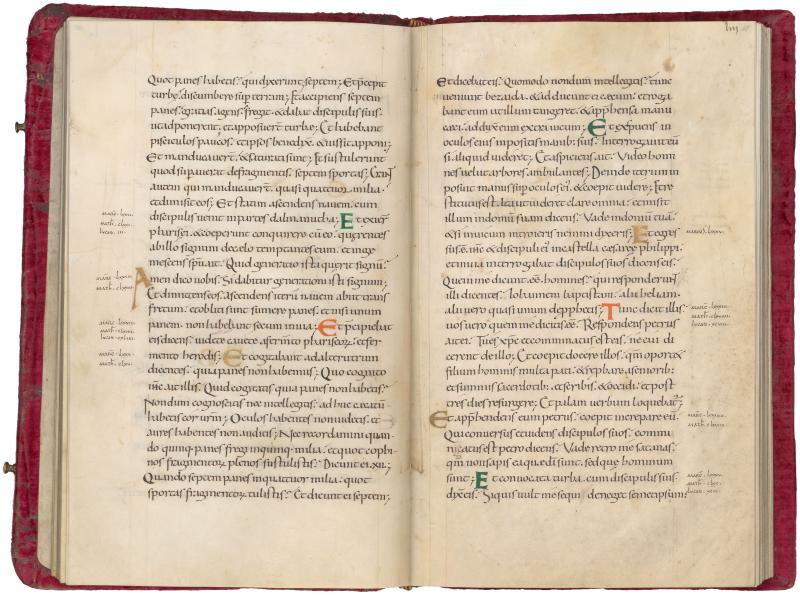 Quot panes habetis. qui dixerunt septem; Et p̄cepit
turbę discumbere sup terram; Et accipiens septem
panes. gratias agens fregit. & dabat discipulis suis.
ut adponerent. et apposuer̄ turbę; Et habebant
pisciculos paucos. et ipsos benedix̄. & iussit apponi;
Et manducauer̄. & saturati sunt; Et sustulerunt
quod supauerat defragmentis. septem sportas;
autem qui manducauer̄. quasi quattuor milia.
et dimisit eos; Et statim ascendens nauem. cum
discipulis uenit inpartes dalmanutha; Et exier̄
pharisei. & coeperunt conquirere cū eo. quęrentes
abillo signum decęlo temptantes eum. et inge
mescens sp̄u ait. Quid generatio ista querit signū.
Amen dico uobis. Si dabitur generationi isti signum;
Et dimittens eos. ascendens iterū nauem abiit trans
fretum. et obliti sunt sumere panes. et nisi unum
panem. non habebant secum innaui; Et p̄cipiebat
eis dicens. uidete cauete a fermto phariseoꝝ. et fer
mento herodis; Et cogitabant adalterutrum
dicentes. quia panes non habemus; Quo cognito
ait illis. Quid cogitatis quia panes non habetis.
Nondum cognoscitis nec intellegitis. ad huc cęcatū
habetis cor urm̄; Oculos habentes non uidetis. et
aures habentes non auditis; Nec recordamini quan
do quinq; panes fregi inquinq; milia. et quot cophi
nos fragmentoꝝ plenos sustulistis. Dicunt ei. xii;
Quando septem panes inquattuor milia. quot
sportas fragmentoꝝ tulistis. Et dicunt ei septem;
Et dicebat eis. Quomodo nondum intellegitis. tunc
ueniunt bezaida. & adducunt ei cęcum. et roga
bant eum ut illum tangeret. & app̄hensa manu
cęci. adduxit eum extra uicum; Et expuens in
oculos eius impositis manib; suis. Interrogauit eū
si aliquid uideret; Et aspiciens ait. Video homi
nes uelut arbores. ambulantes; Deinde iterum in
posuit manus sup oculos ei. & coepit uidere; Et re
stitutus est. ita ut uideret clare omnia. et misit
illum indomū suam dicens. Vade indomū tuā.
& si inuicum introieris nemini dixeris; Et egres
sus & discipuli ei incastella cęsareę philippi.
et inuia interrogabat discipulos suos dicens eis.
Quem me dicunt homines. qui responderunt
illi dicentes. Iohannem baptistam. alii heliam.
alii uero quasi unum de pphetis; Tunc dicit illis.
uos uero quem me dicitis Respondens petrus
ait ei. Tu es xp̄c et comminatus est eis. ne cui di
cerent de illo; Et coepit docere illos. qm̄ oportet
filium hominis multa pati. & rep̄bare asenioribꝰ.
et summis sacerdotib; et scribis. & occidi. et post
tres dies resurgere; Et palam uerbum loquebatᷣ;
Et app̄hendens eum petrus. coepit increpare eū.
Qui conuersus et uidens discipulos suos. commi
natus est petro dicens. Vade retro me satanas.
qm̄ non sapis ea quę dī sunt. sed quę hominum
sunt; Et conuocata turba. cum discipulis suis.
dixit eis. Si quis uult me sequi. deneget semetipsum.